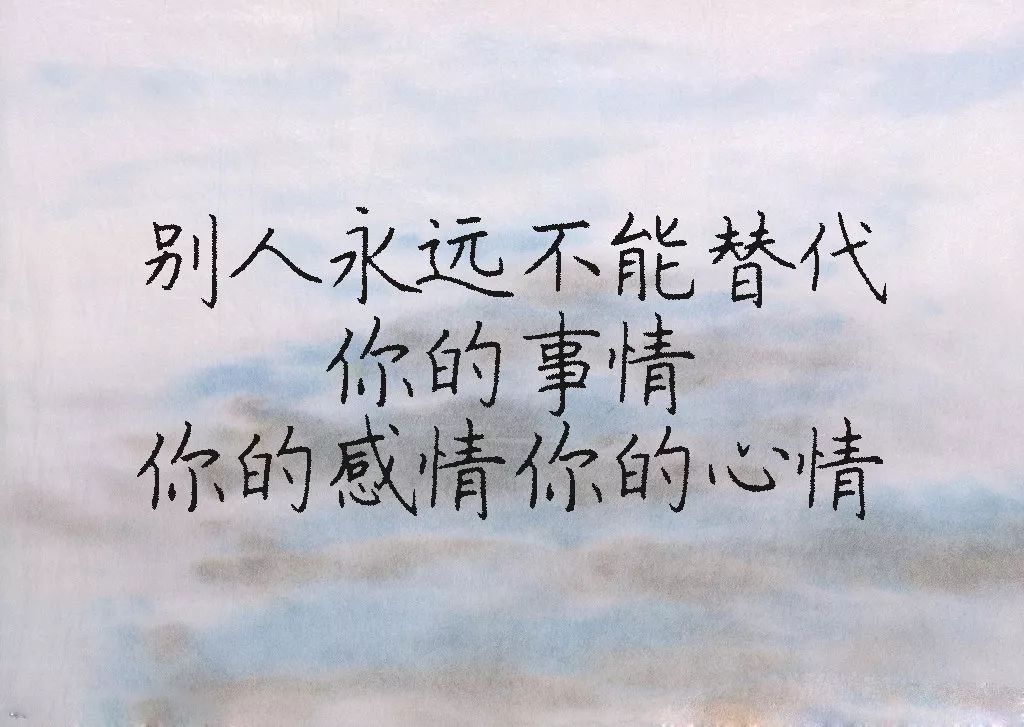 别人永远不能替代
你的事情
你的感情你的心情